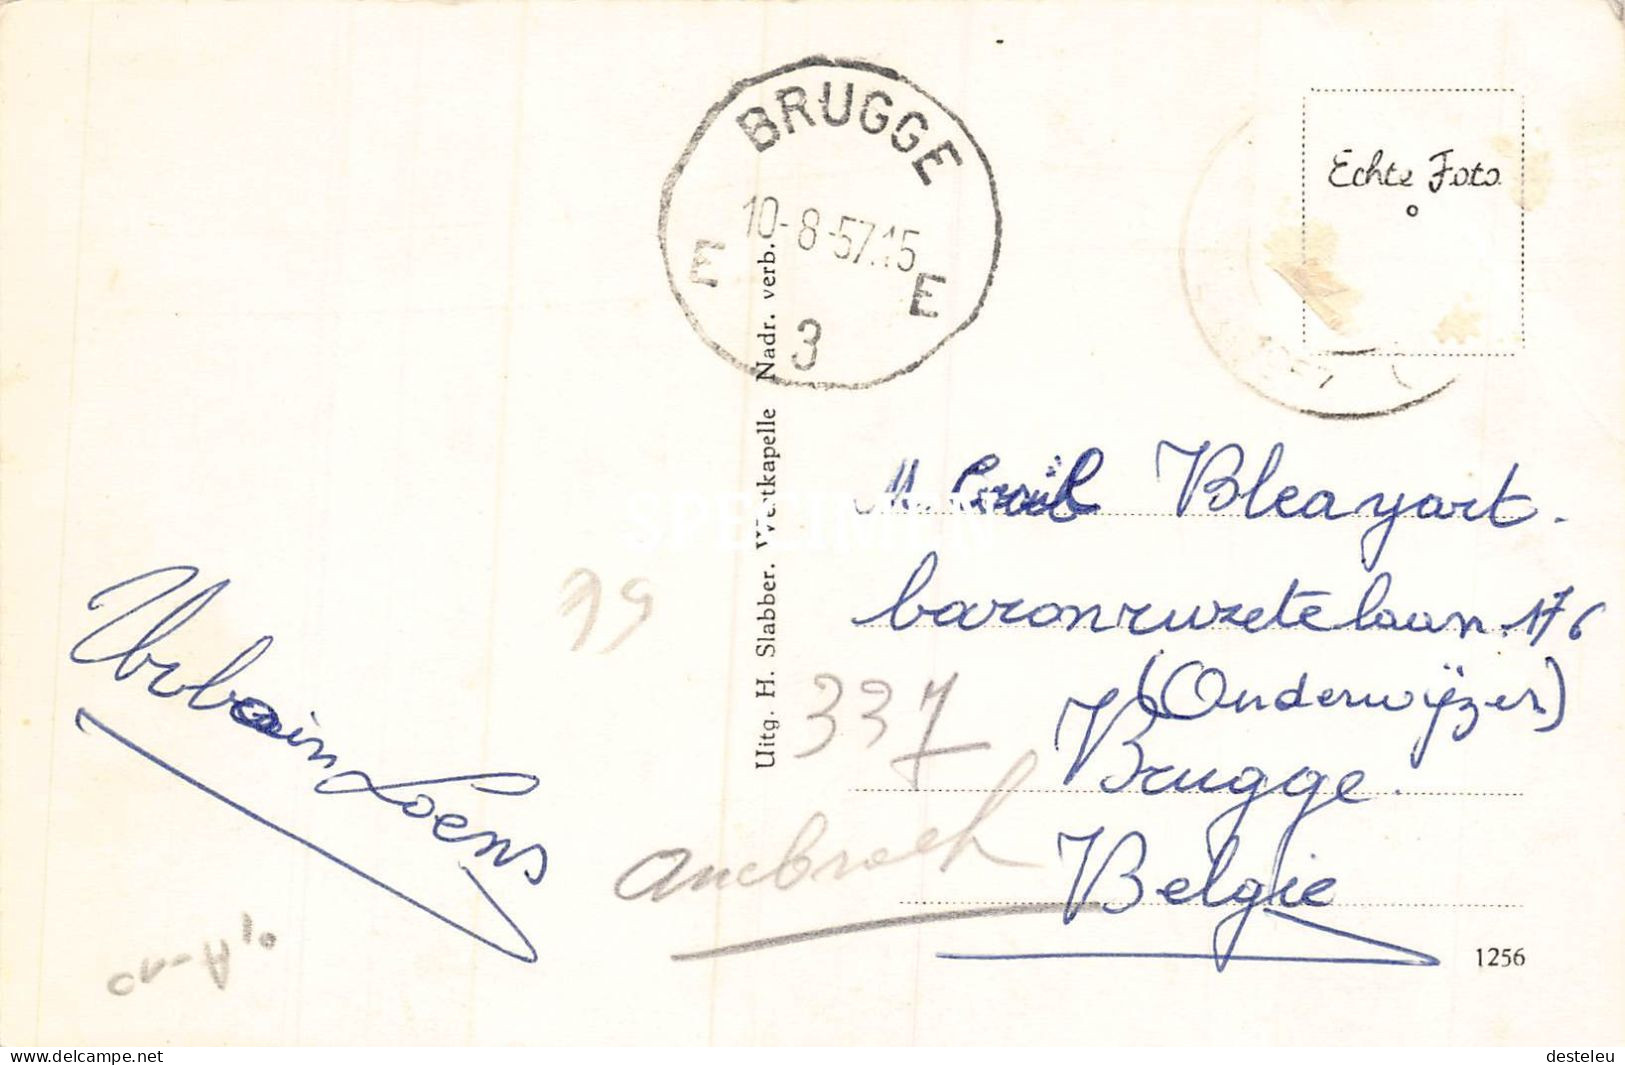 BRUGGE
10-8-57.15
E E
3
Echte Foto
1957
Uitg. H. Slabber. Westkapelle Nadr. verb.
SPECIMEN
M. Emiel Bleayart.
baronruzetelaan. 176
(Onderwijzer)
Brugge.
België
Urbain Loens
337
1256
delcampe.net
desteleu